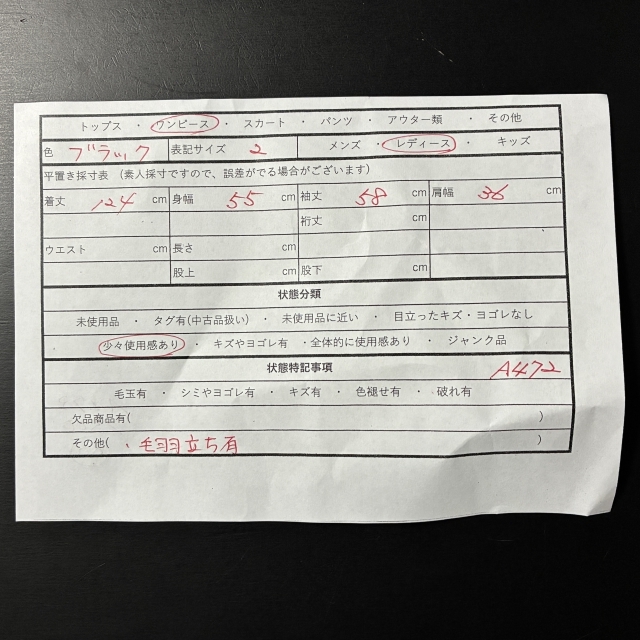 トップス ・ ワンピース ・ スカート ・ パンツ ・ アウター類 ・ その他
色 ブラック 表記サイズ 2 メンズ ・ レディース ・ キッズ
平置き採寸表 (素人採寸ですので、誤差がでる場合がございます)
着丈 124 cm 身幅 55 cm 袖丈 58 cm 肩幅 36 cm
裄丈 cm
ウエスト cm 長さ cm
股上 cm 股下 cm
状態分類
未使用品 ・ タグ有(中古品扱い) ・ 未使用品に近い ・ 目立ったキズ・ヨゴレなし
少々使用感あり ・ キズやヨゴレ有 ・全体的に使用感あり ・ ジャンク品
状態特記事項 A472
毛玉有 ・ シミやヨゴレ有 ・ キズ有 ・ 色褪せ有 ・ 破れ有
欠品商品有( )
その他( ・毛羽立ち有 )